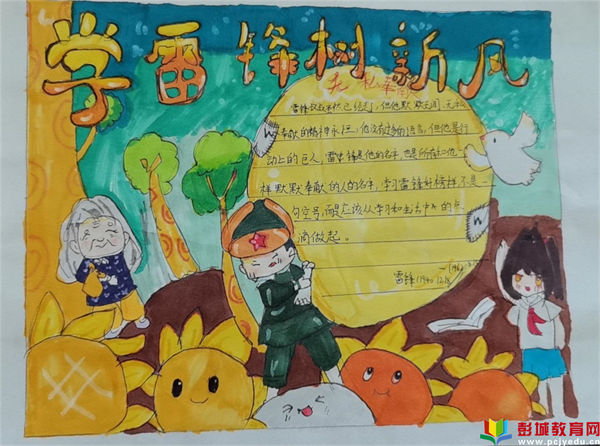 学雷锋树新风
无私奉献
雷锋叔叔虽然已经走了，但他默默无闻、无私
奉献的精神永恒，他没有过多的语言，但他是行
动上的巨人，雷锋是他的名字，也是所有和他一
样默默奉献的人的名字，学习雷锋好榜样不是一
句空号，而是应该从学习和生活中的点
滴做起。
雷锋(1940.12.18
彭城教育网
www.pcjyedu.cn